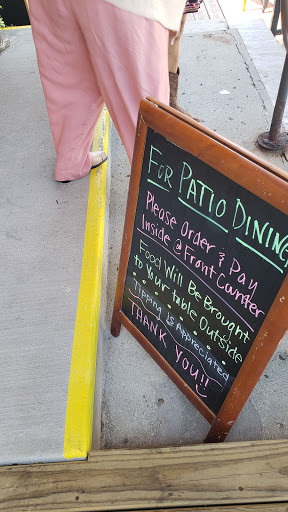 FOR PATIO DINING
Please Order & Pay
Inside @ Front Counter
Food Will Be Brought
to Your table Outside
Tipping is Appreciated
THANK YOU!!